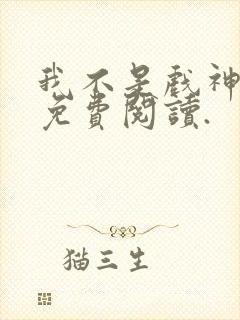 我不是戲神
免費閱讀.
猫三生